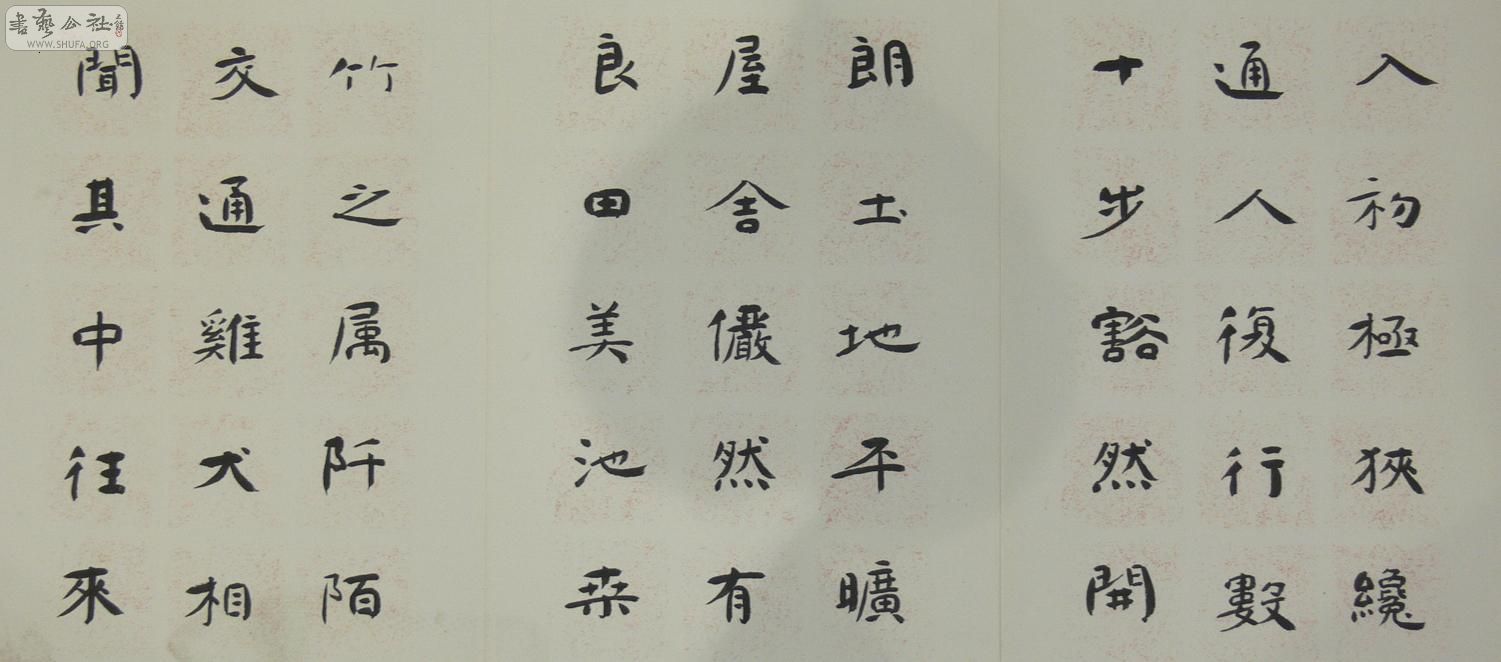 入初極狹纔
通人復行數
十步豁然開
朗土地平曠
屋舍儼然有
良田美池桒
竹之属阡陌
交通雞犬相
聞其中往來
書藝公社
WWW.SHUFA.ORG